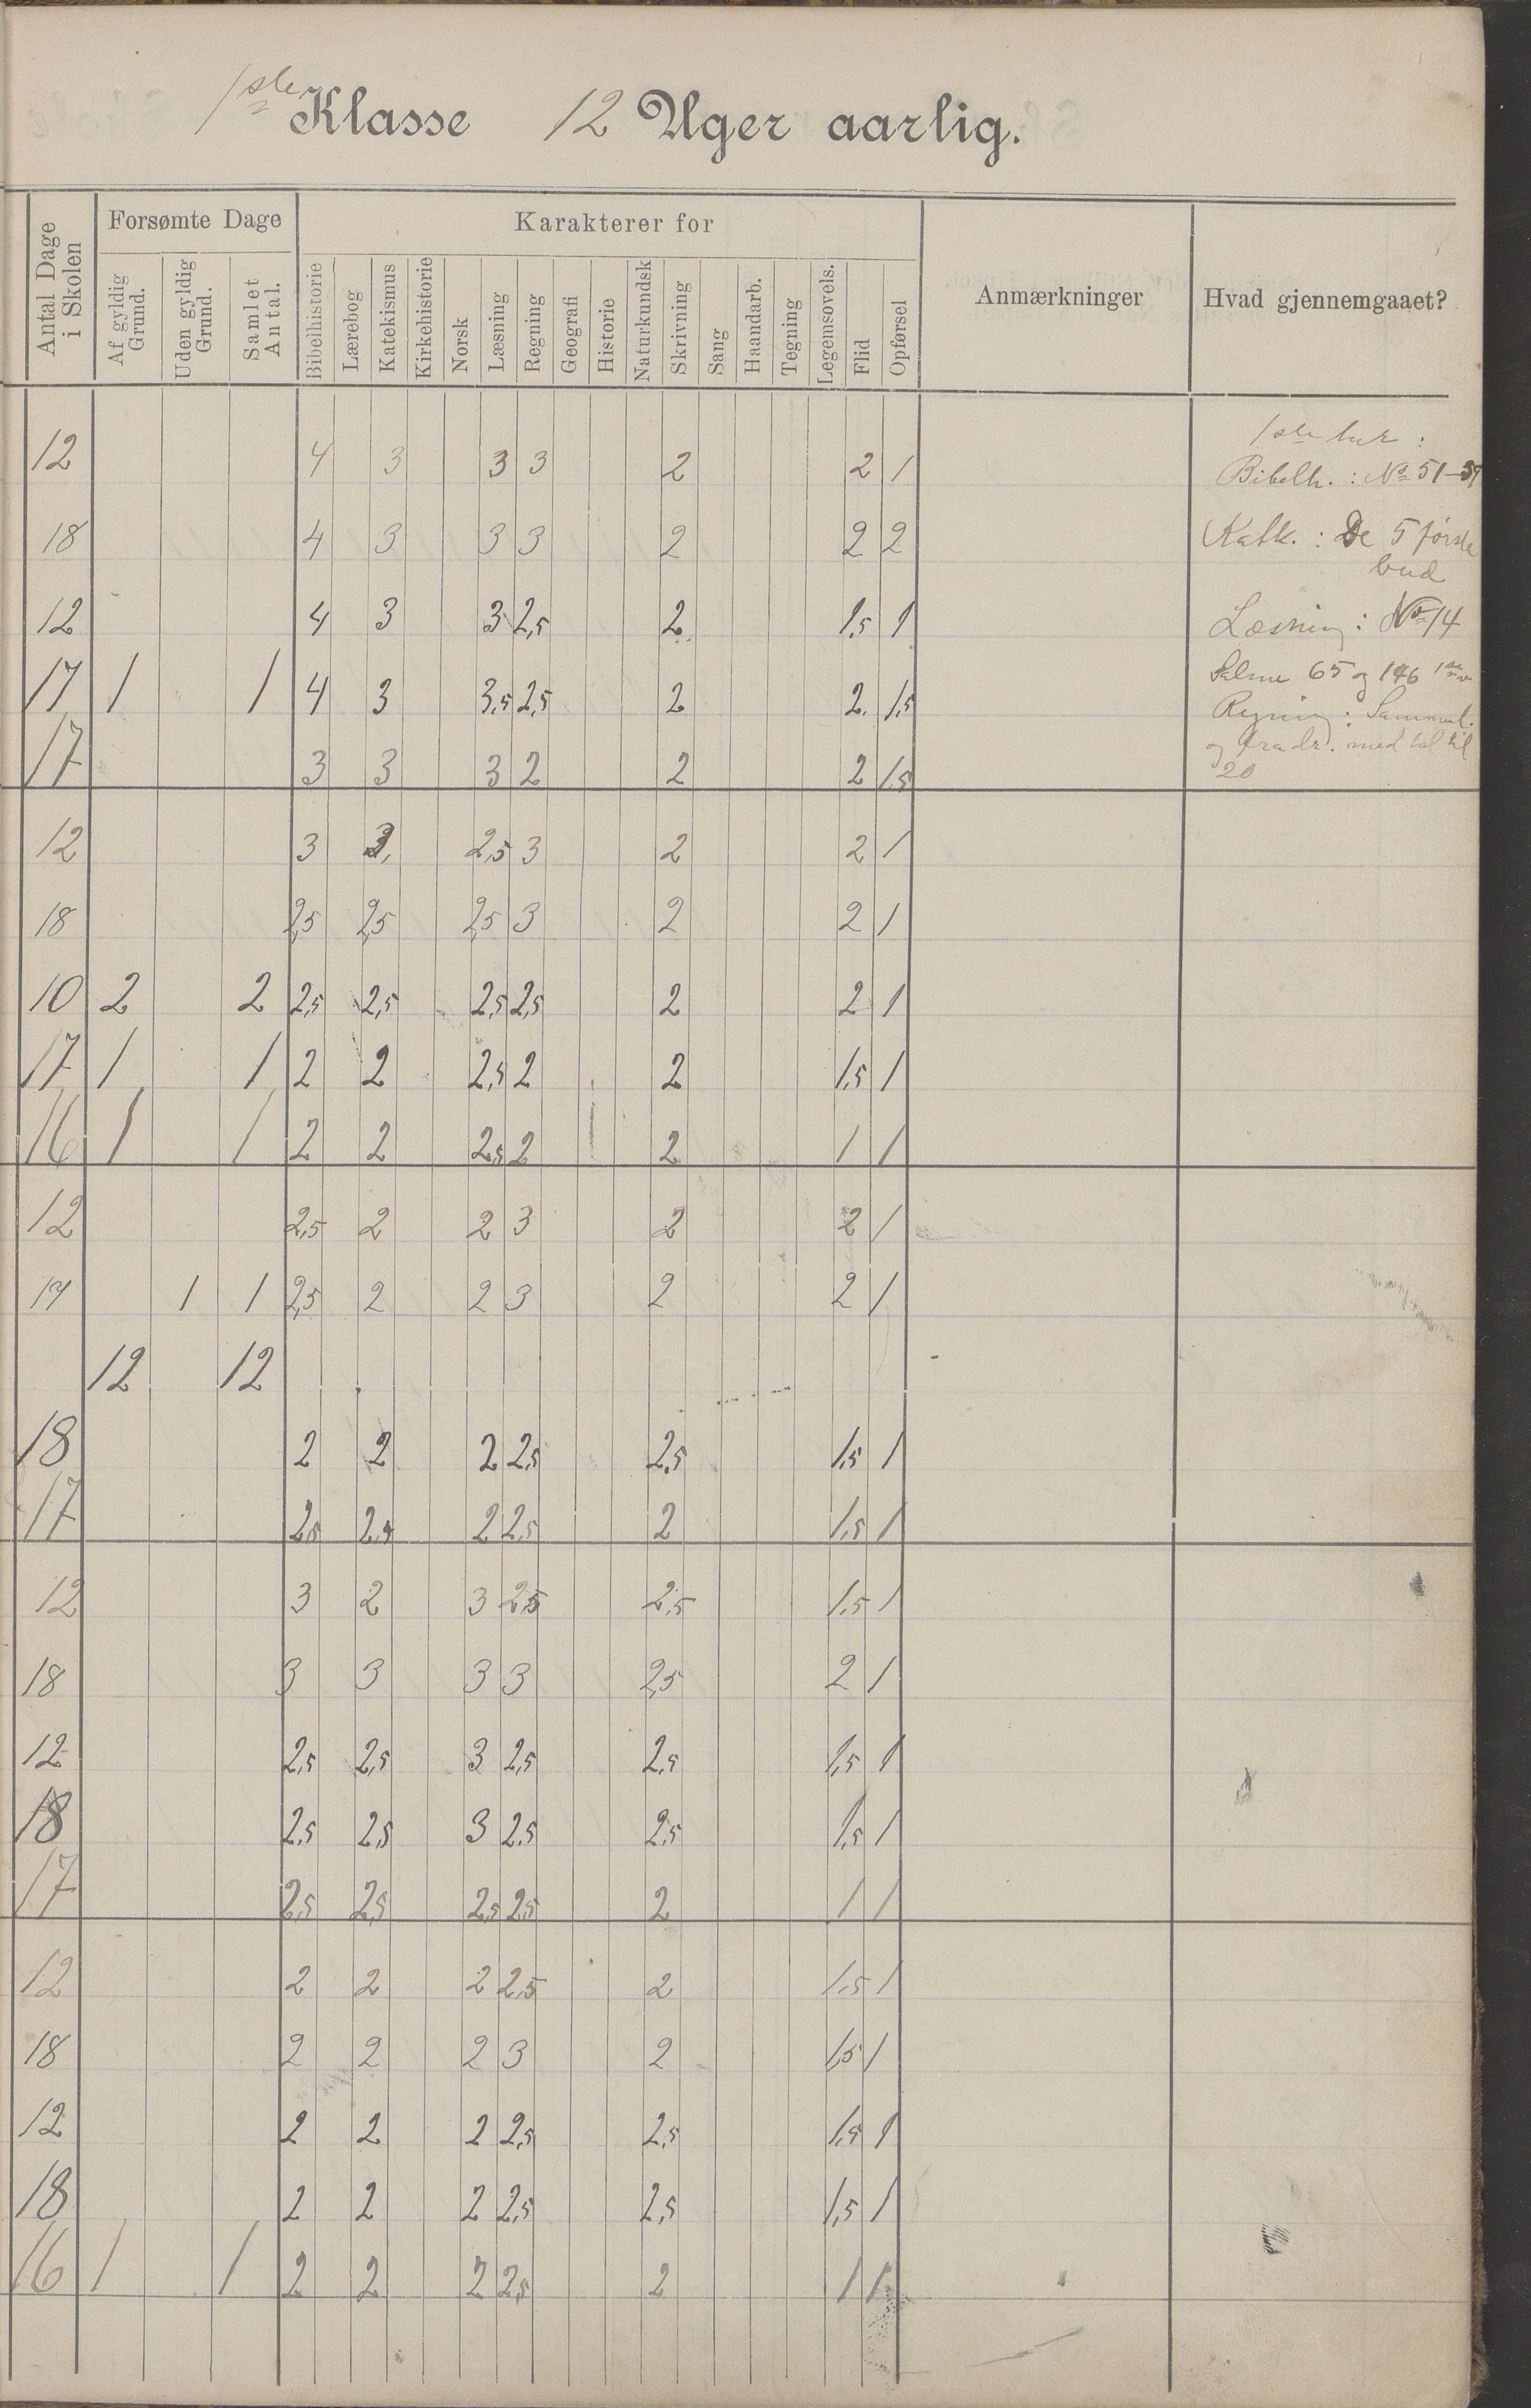 1ste Klasse 12 Uger aarlig.
Antal Dage i Skolen
Forsømte Dage
Af gyldig Grund.
Uden gyldig Grund.
Samlet Antal.
Karakterer for
Bibelhistorie
Lærebog
Katekismus
Kirkehistorie
Norsk
Læsning
Regning
Geografi
Historie
Naturkundsk
Skrivning
Sang
Haandarb.
Tegning
Legemsovels.
Flid
Opførsel
Anmærkninger
Hvad gjennemgaaet?
12 4 3 3 3 2 2 1
18 4 3 3 3 2 2 2
12 4 3 3 2,5 2 1,5 1
17 1 1 4 3 3,5 2,5 2 2. 1,5
17 3 3 3 2 2 2 1,5
12 3 3, 2,5 3 2 2 1
18 2,5 2,5 2,5 3 2 2 1
10 2 2 2,5 2,5 2,5 2,5 2 2 1
17 1 1 2 2 2,5 2 2 1,5 1
16 1 1 2 2 2,5 2 2 1 1
12 2,5 2 2 3 2 2 1
17 1 1 2,5 2 2 3 2 2 1
12 12
18 2 2 2 2,5 2,5 1,5 1
17 2,5 2,5 2 2,5 2 1,5 1
12 3 2 3 2,5 2,5 1,5 1
18 3 3 3 3 2,5 2 1
12 2,5 2,5 3 2,5 2,5 1,5 1
18 2,5 2,5 3 2,5 2,5 1,5 1
17 2,5 2,5 2,5 2,5 2 1 1
12 2 2 2 2,5 2 1,5 1
18 2 2 2 3 2 1,5 1
12 2 2 2 2,5 2,5 1,5 1
18 2 2 2 2,5 2,5 1,5 1
16 1 1 2 2 2 2,5 2 1 1
1ste
Bibelh. : No 51-59
Katk. : De 5 første
bud
Læsning : No 14
Salme 65 og 146 1ste v
Regning :
og fradr. med tal til
20